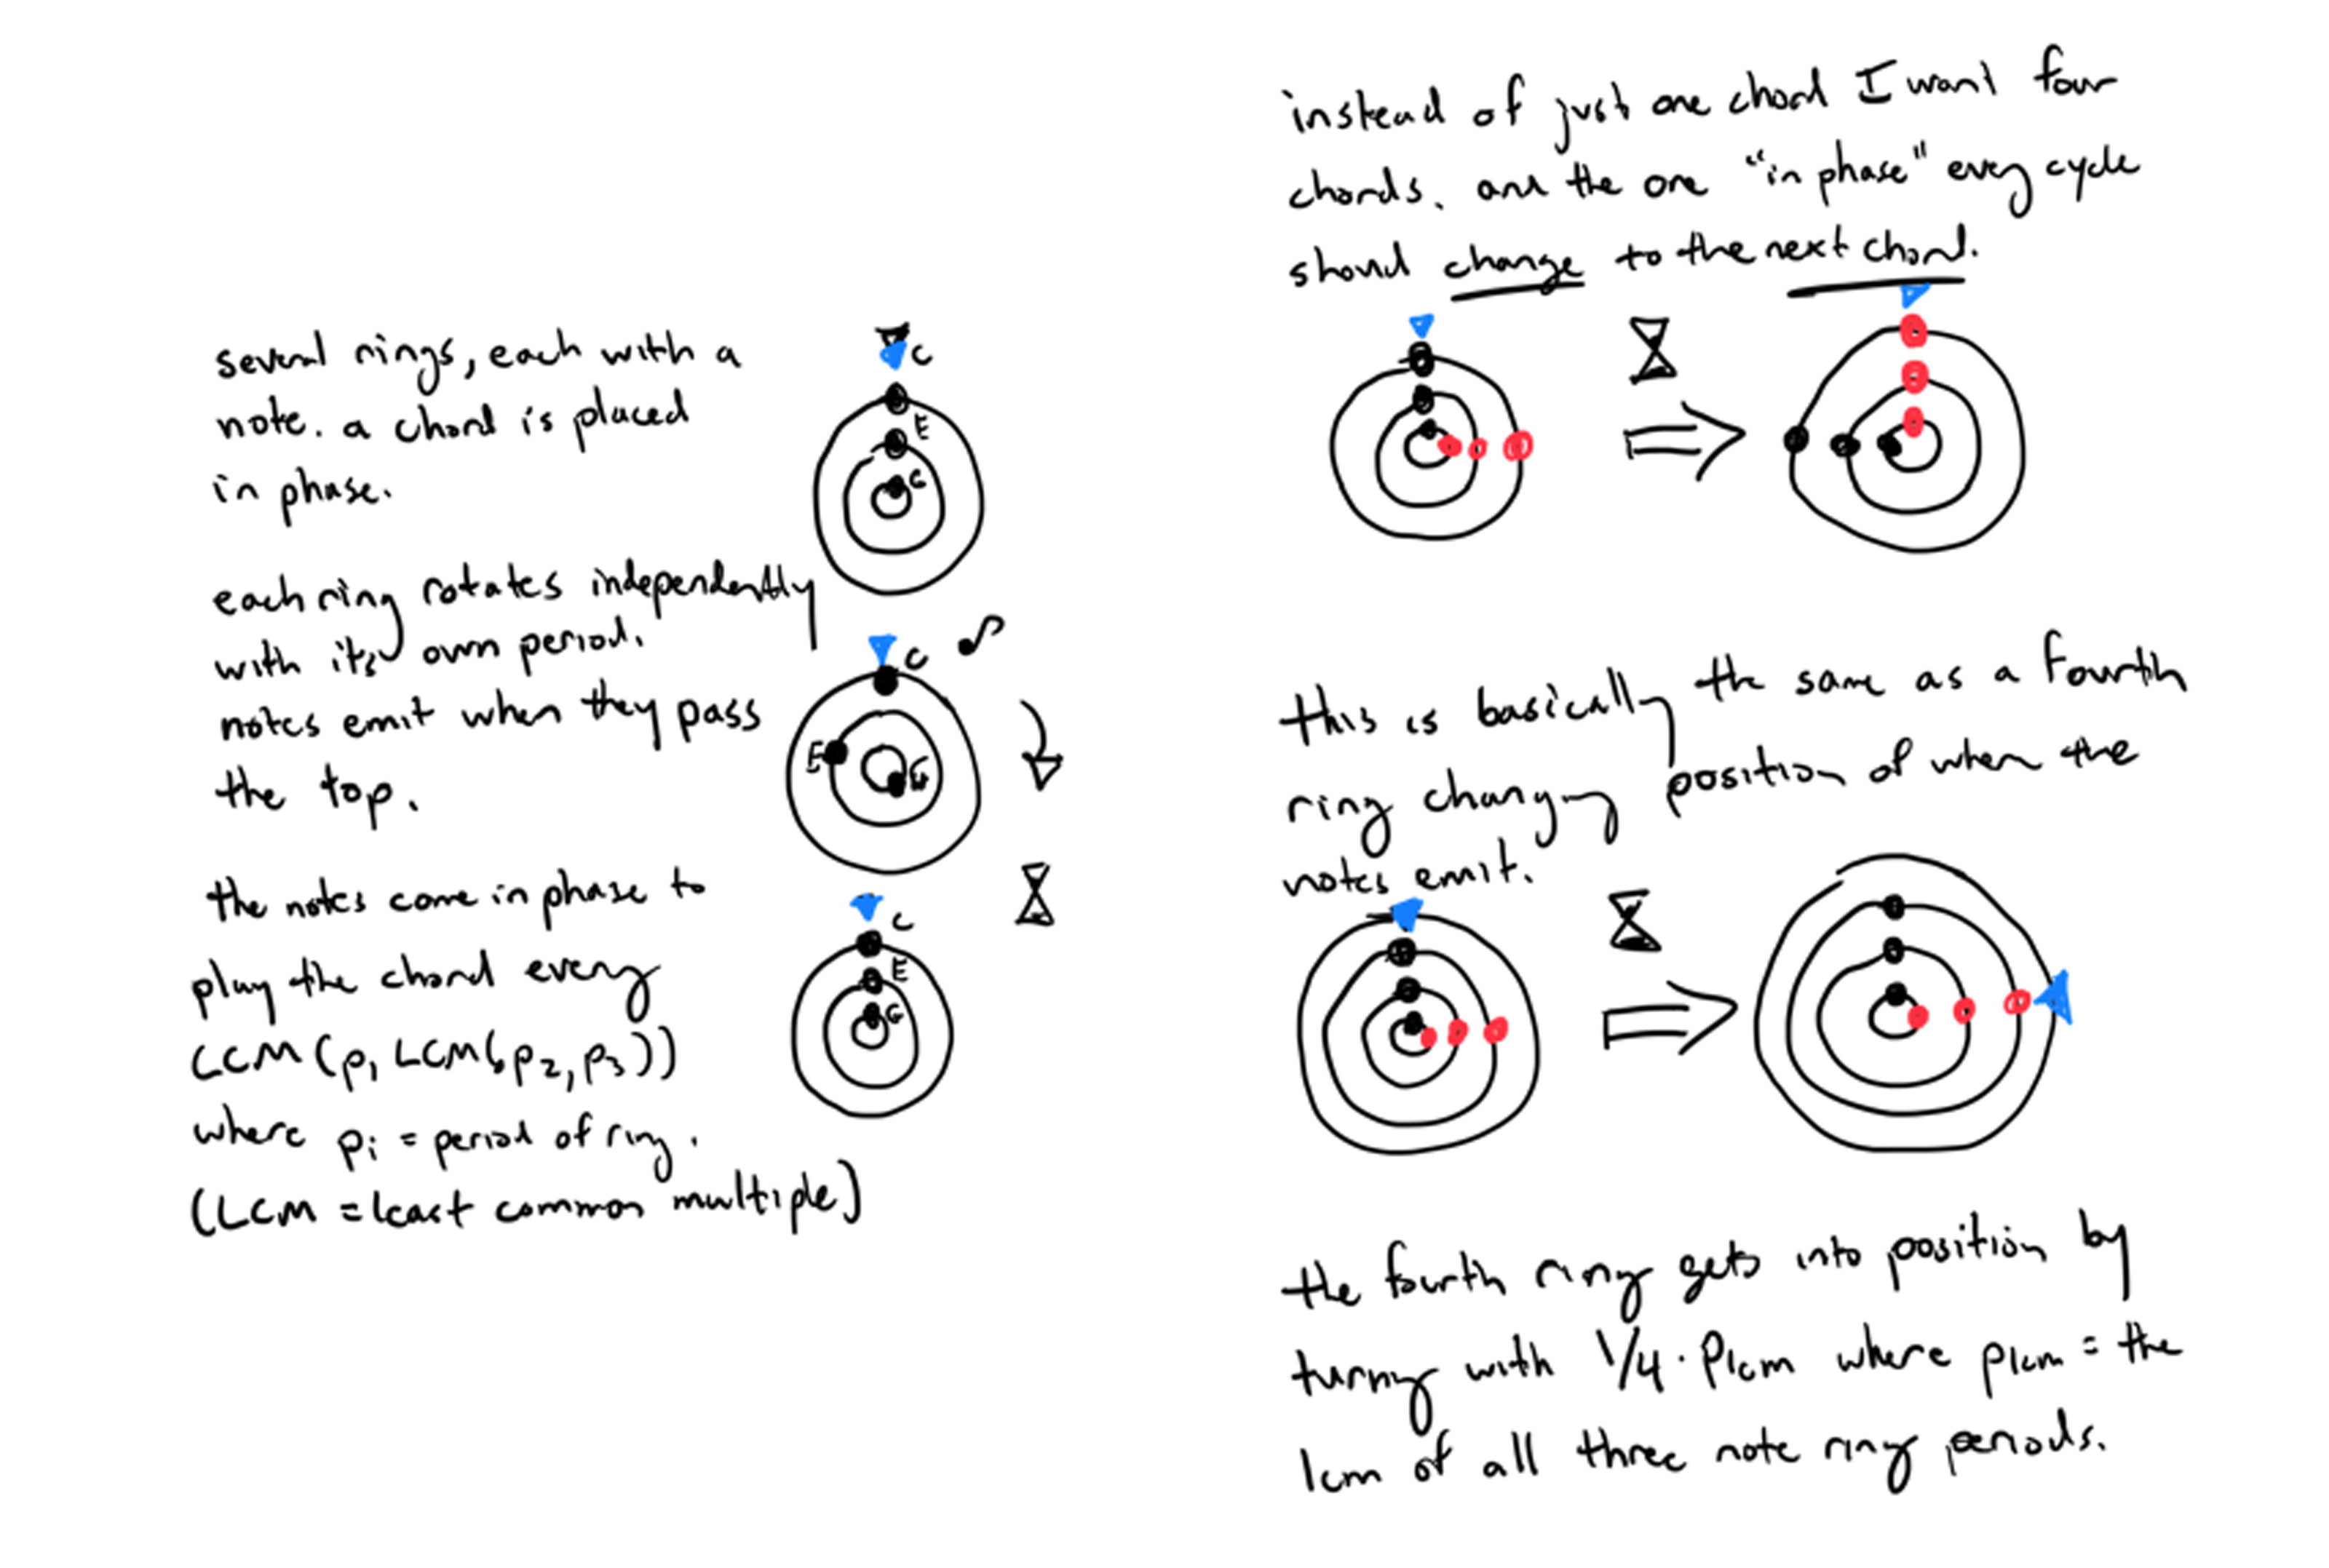 several rings, each with a
note. a chord is placed
in phase.
C
E
G
each ring rotates independently
with its own period.
notes emit when they pass
the top.
C
E
G
the notes come in phase to
play the chord every
LCM(p, LCM(p2, p3))
where pi = period of ring.
(LCM = least common multiple)
C
E
G
instead of just one chord I want four
chords. and the one "in phase" every cycle
should change to the next chord.
this is basically the same as a fourth
ring changing position of when the
notes emit.
the fourth ring gets into position by
turning with 1/4 · Plcm where plcm = the
lcm of all three note ring periods.